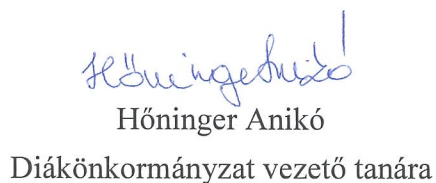 Hőninger Anikó
Hőninger Anikó
Diákönkormányzat vezető tanára